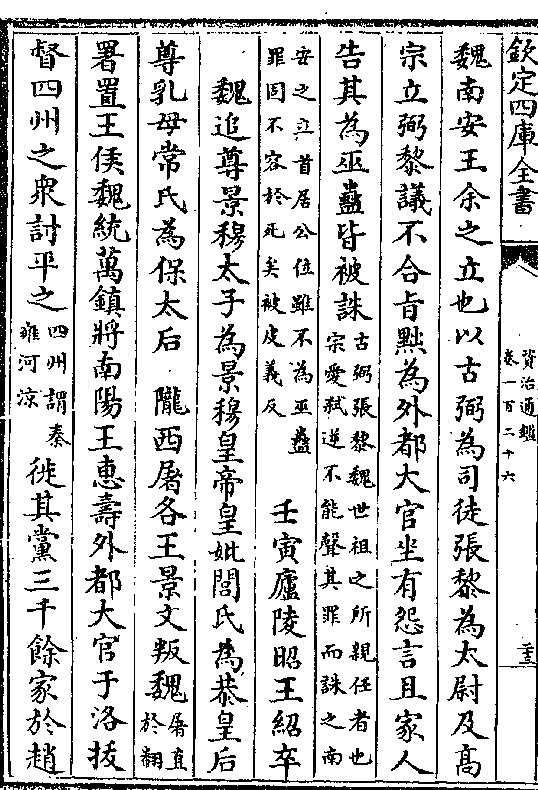 欽定四庫全書
資治通鑑
卷一百二十六
魏南安王余之立也以古弼為司徒張黎為太尉及髙
宗立弼黎議不合㫖黜為外都大官坐有怨言且家人
告其為巫蠱皆被誅
古弼張黎魏世祖之所親任者也
宗愛弑逆不能聲其罪而誅之南
安之立首居公位雖不為巫蠱
罪固不容於死矣被皮義反
壬寅廬陵昭王紹卒
魏追尊景穆太子為景穆皇帝皇妣閭氏為恭皇后
尊乳母常氏為保太后 隴西屠各王景文叛魏
屠直
於翻
署置王侯魏統萬鎮將南陽王惠壽外都大官于洛拔
督四州之衆討平之
四州謂秦
雍河涼
徙其黨三千餘家於趙